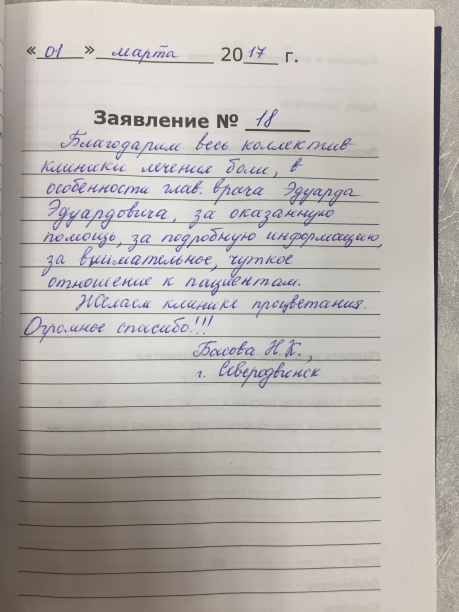 «01» марта 2017 г.
Заявление № 18
Благодарим весь коллектив
клиники лечения боли, в
особенности глав. врача Эдуарда
Эдуардовича, за оказанную
помощь, за подробную информацию,
за внимательное, чуткое
отношение к пациентам.
Желаем клинике процветания.
Огромное спасибо!!!
Н.К.,
г. Северодвинск